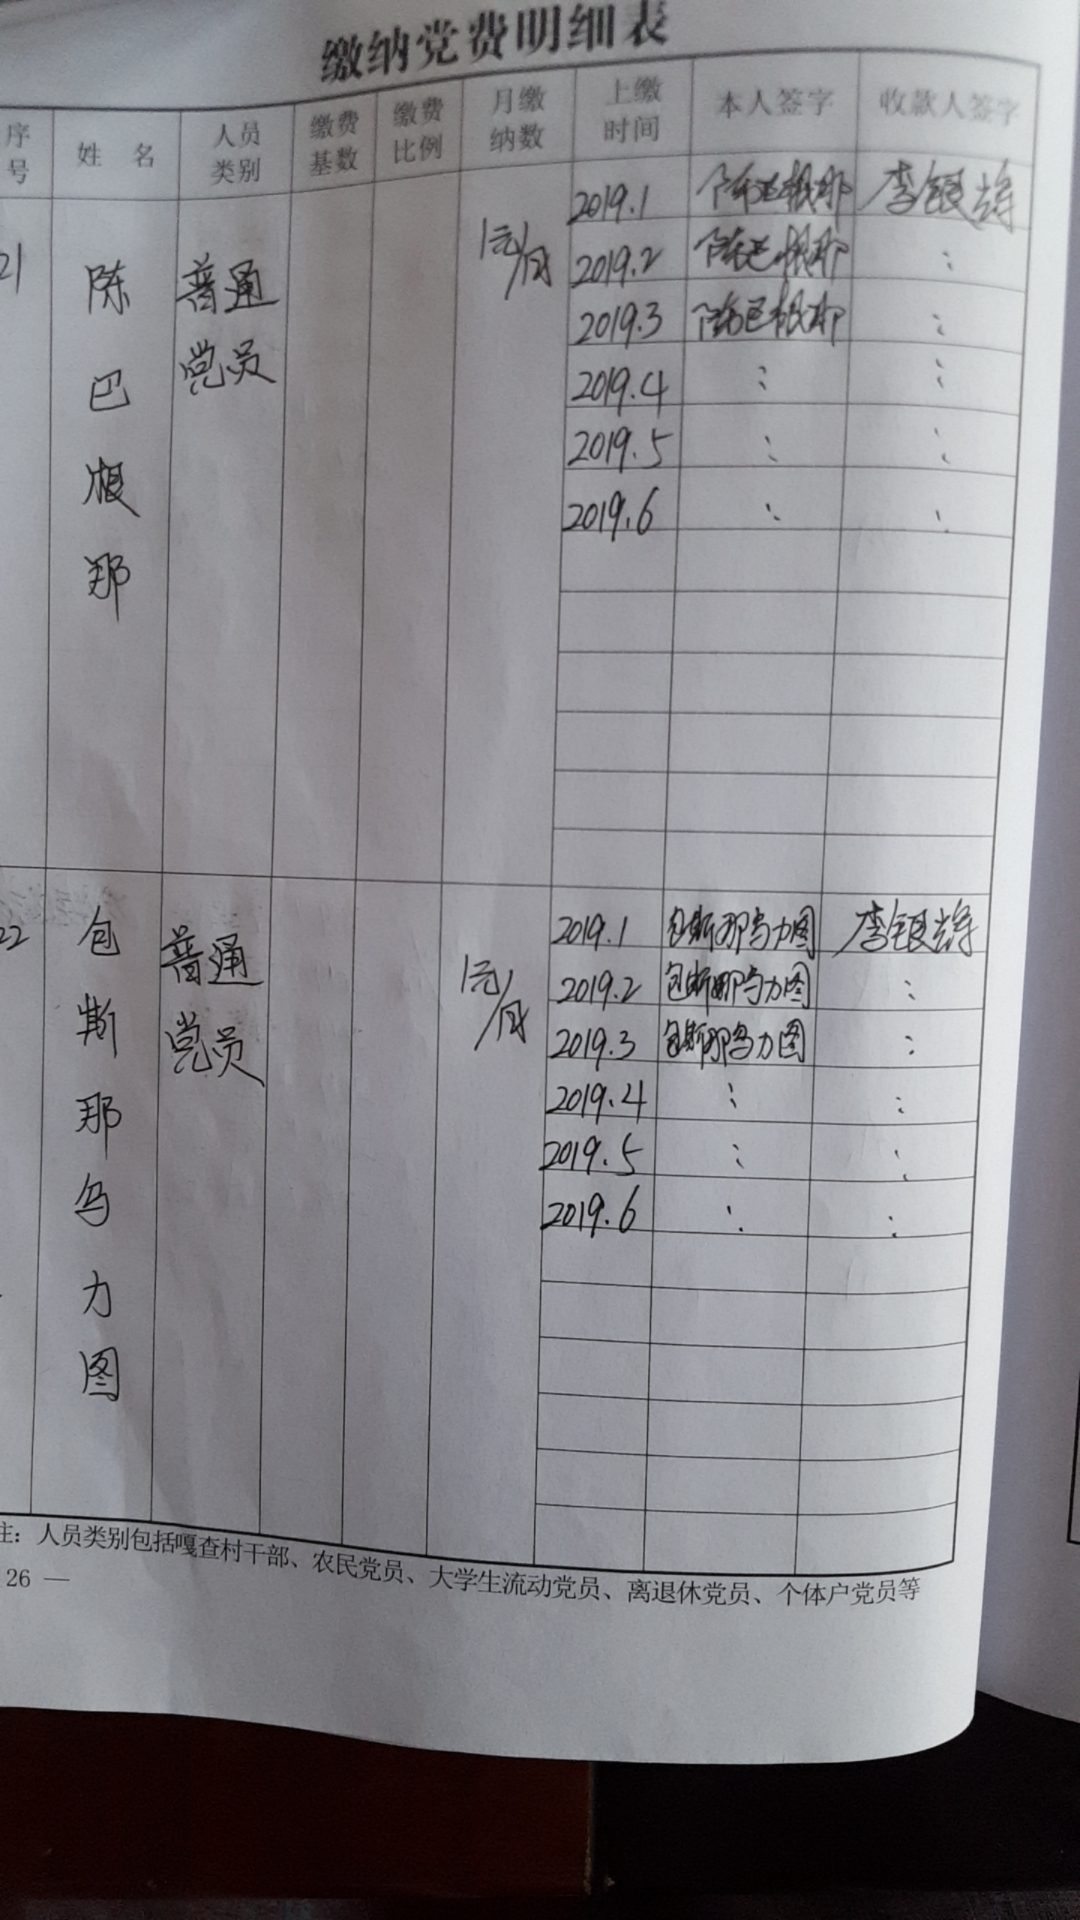 缴纳党费明细表
序号 姓 名 人员类别 缴费基数 缴费比例 月缴纳数 上缴时间 本人签字 收款人签字
21 陈巴根那 普通党员 1元/月 2019.1 陈巴根那 李银辉
2019.2 陈巴根那 :
2019.3 陈巴根那 :
2019.4 : :
2019.5 : :
2019.6 : :
22 包斯那乌力图 普通党员 1元/月 2019.1 包斯那乌力图 李银辉
2019.2 包斯那乌力图 :
2019.3 包斯那乌力图 :
2019.4 : :
2019.5 : :
2019.6 : :
注：人员类别包括嘎查村干部、农民党员、大学生流动党员、离退休党员、个体户党员等
26 —